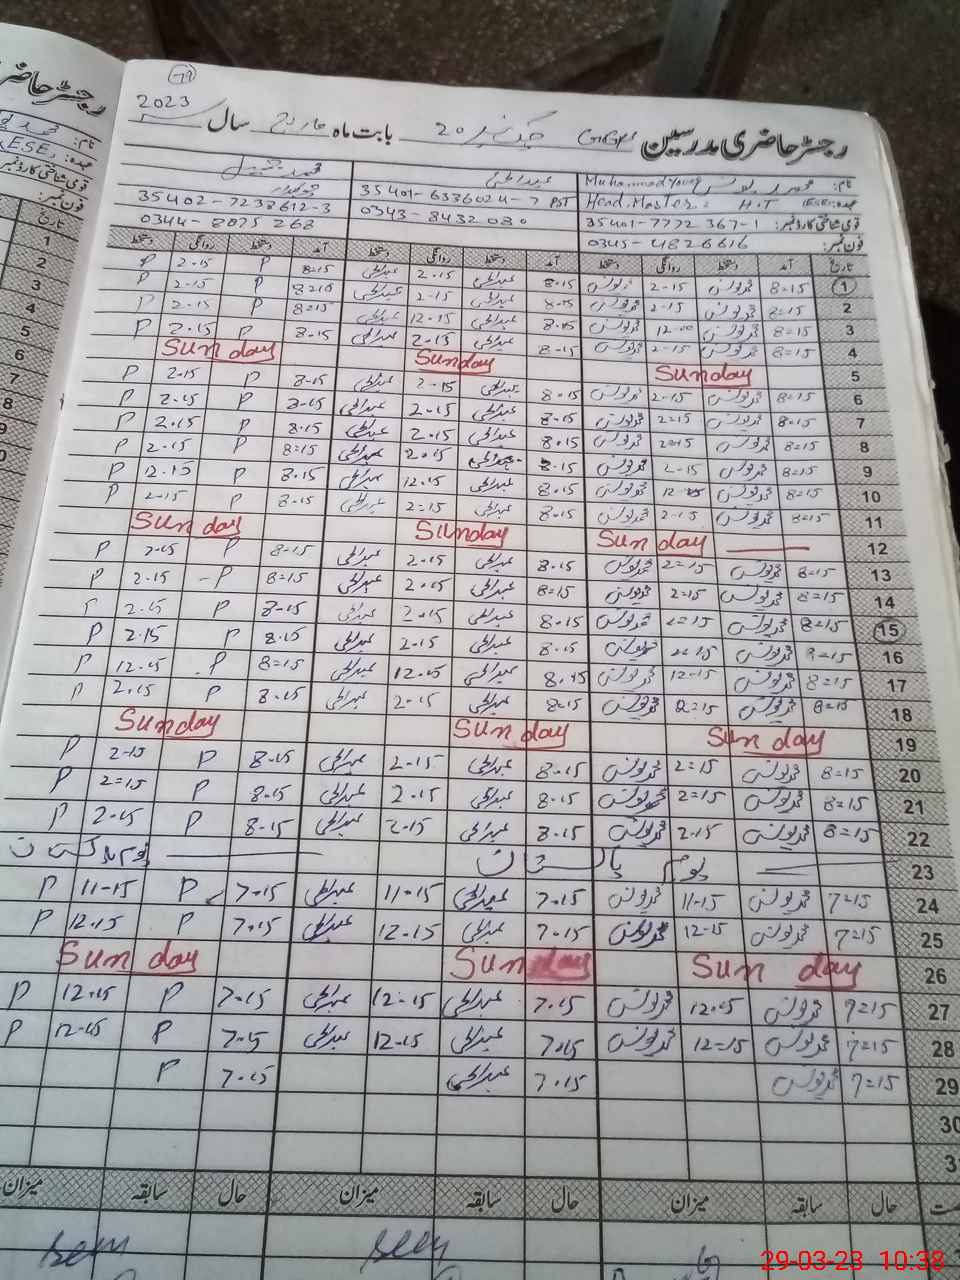 79
رجسٹر حاضری مدرسین GGPS چک نمبر 20 بابت ماہ مارچ سال 2023
نام: محمد یونس Muhammad Younas عبدالحئی محمد
عہدہ: (ESE) Head Master : H.T PST چوکیدار
قومی شناختی کارڈ نمبر: 35401-7772367-1 35401-6336024-7 35402-7238612-3
فون نمبر: 0345-4826616 0343-8432080 0344-8075268
تاریخ آمد دستخط روانگی دستخط آمد دستخط روانگی دستخط آمد دستخط روانگی دستخط
1 8=15 محمد یونس 2-15 محمد یونس 8.15 عبدالحئی 2.15 عبدالحئی 8=15 P 2-15 P
2 8=15 محمد یونس 2-15 محمد یونس 8.15 عبدالحئی 2-15 عبدالحئی P 2-15 P
3 8=15 محمد یونس محمد یونس 8.15 عبدالحئی 12.15 عبدالحئی 8=15 P 2-15 P
4 8=15 محمد یونس 2-15 محمد یونس 8-15 عبدالحئی 2-15 عبدالحئی 8-15 P 2.15 P
5 Sunday Sunday Sunday
6 8=15 محمد یونس 2-15 محمد یونس 8.15 عبدالحئی 2-15 عبدالحئی 8-15 P 2-15 P
7 8=15 محمد یونس 2=15 محمد یونس 8.15 عبدالحئی 2.15 عبدالحئی 8-15 P 2.15 P
8 8=15 محمد یونس 2=15 محمد یونس 8.15 عبدالحئی 2.15 عبدالحئی 8.15 P 2.15 P
9 8=15 محمد یونس 2-15 محمد یونس 8-15 عبدالحئی 2.15 عبدالحئی 8=15 P 2-15 P
10 8=15 محمد یونس 12-15 محمد یونس 8.15 عبدالحئی 12.15 عبدالحئی 8.15 P 12.15 P
11 8=15 محمد یونس 2-15 محمد یونس 8.15 عبدالحئی 2-15 عبدالحئی 8-15 P 2-15 P
12 Sunday Sunday Sunday
13 8=15 محمد یونس 2=15 محمد یونس 8.15 عبدالحئی 2.15 عبدالحئی 8-15 P 2.15 P
14 8=15 محمد یونس 2=15 محمد یونس 8=15 عبدالحئی 2.15 عبدالحئی 8=15 P 2.15 P
15 8=15 محمد یونس 2=15 محمد یونس 8.15 عبدالحئی 2.15 عبدالحئی 8-15 P 2.15 P
16 8=15 محمد یونس 2=15 محمد یونس 8.15 عبدالحئی 2.15 عبدالحئی 8.15 P 2.15 P
17 8=15 محمد یونس 12-15 محمد یونس 8.15 عبدالحئی 12.15 عبدالحئی 8=15 P 12.15 P
18 8=15 محمد یونس 2=15 محمد یونس 8=15 عبدالحئی 2-15 عبدالحئی 8.15 P 2.15 P
19 Sunday Sunday Sunday
20 8=15 محمد یونس 2=15 محمد یونس 8-15 عبدالحئی 2-15 عبدالحئی 8.15 P 2-15 P
21 8=15 محمد یونس 2=15 محمد یونس 8.15 عبدالحئی 2.15 عبدالحئی 8.15 P 2=15 P
22 8=15 محمد یونس 2.15 محمد یونس 8.15 عبدالحئی 2.15 عبدالحئی 8.15 P 2.15 P
23 یوم پاکستان یوم پاکستان
24 7=15 محمد یونس 11-15 محمد یونس 7.15 عبدالحئی 11.15 عبدالحئی 7.15 P 11-15 P
25 7=15 محمد یونس 12-15 محمد یونس 7.15 عبدالحئی 12.15 عبدالحئی 7.15 P 12.15 P
26 Sunday Sunday Sunday
27 محمد یونس 12.15 محمد یونس 7.15 عبدالحئی 12-15 عبدالحئی 7.15 P 12.15 P
28 7=15 محمد یونس 12-15 محمد یونس 7.15 عبدالحئی 12.15 عبدالحئی 7.15 P 12.15 P
29 7=15 محمد یونس 7.15 عبدالحئی 7.15 P
30
حال سابقہ میزان حال سابقہ میزان حال سابقہ میزان
seen seen
29-03-23 10:38